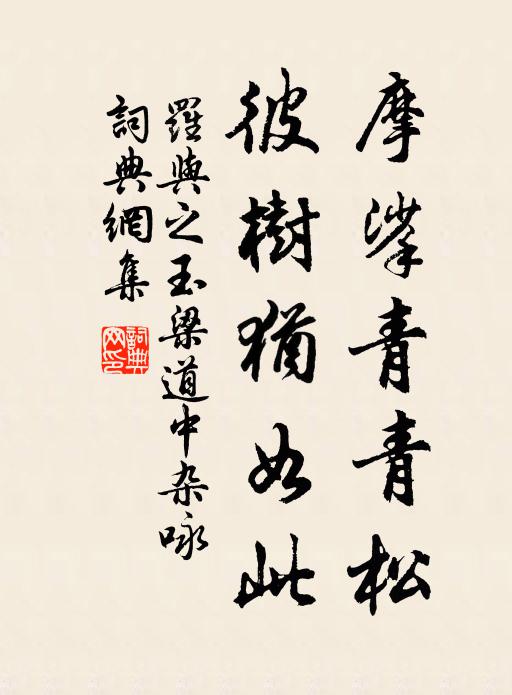 摩挲青青松
彼樹猶如此
羅與之玉梁道中杂咏
詞典網集
詞典网印